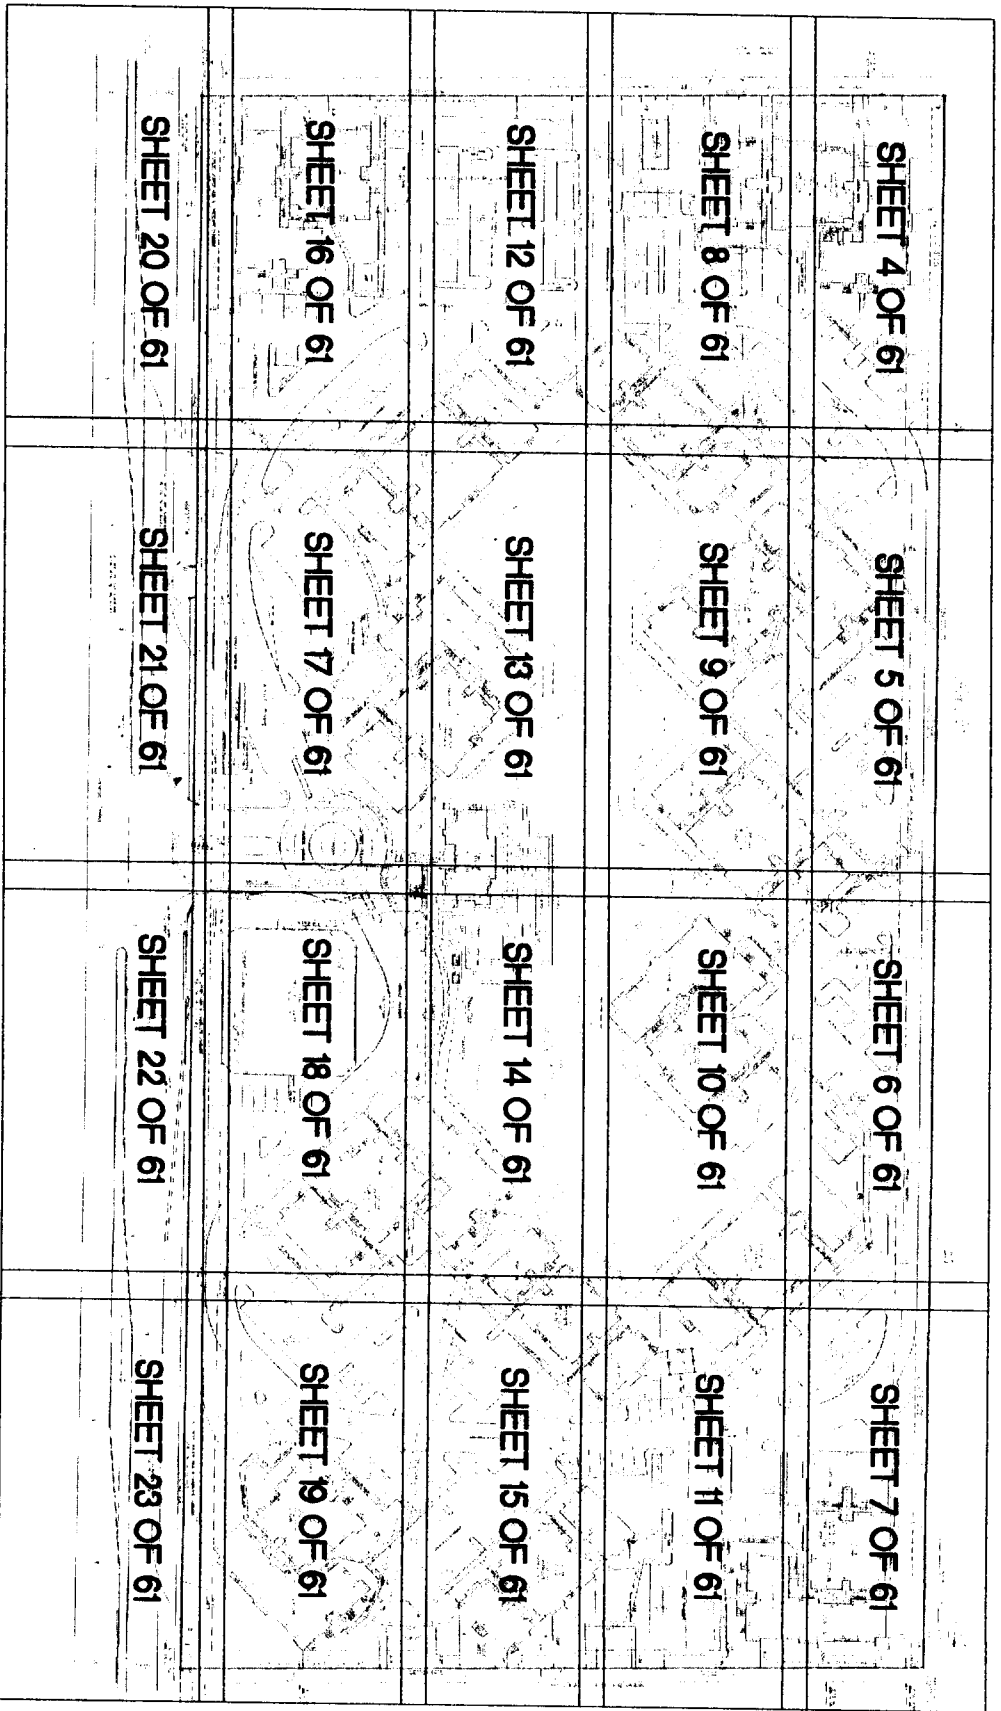 SHEET 4 OF 61
SHEET 5 OF 61
SHEET 6 OF 61
SHEET 7 OF 61
SHEET 8 OF 61
SHEET 9 OF 61
SHEET 10 OF 61
SHEET 11 OF 61
SHEET 12 OF 61
SHEET 13 OF 61
SHEET 14 OF 61
SHEET 15 OF 61
SHEET 16 OF 61
SHEET 17 OF 61
SHEET 18 OF 61
SHEET 19 OF 61
SHEET 20 OF 61
SHEET 21 OF 61
SHEET 22 OF 61
SHEET 23 OF 61